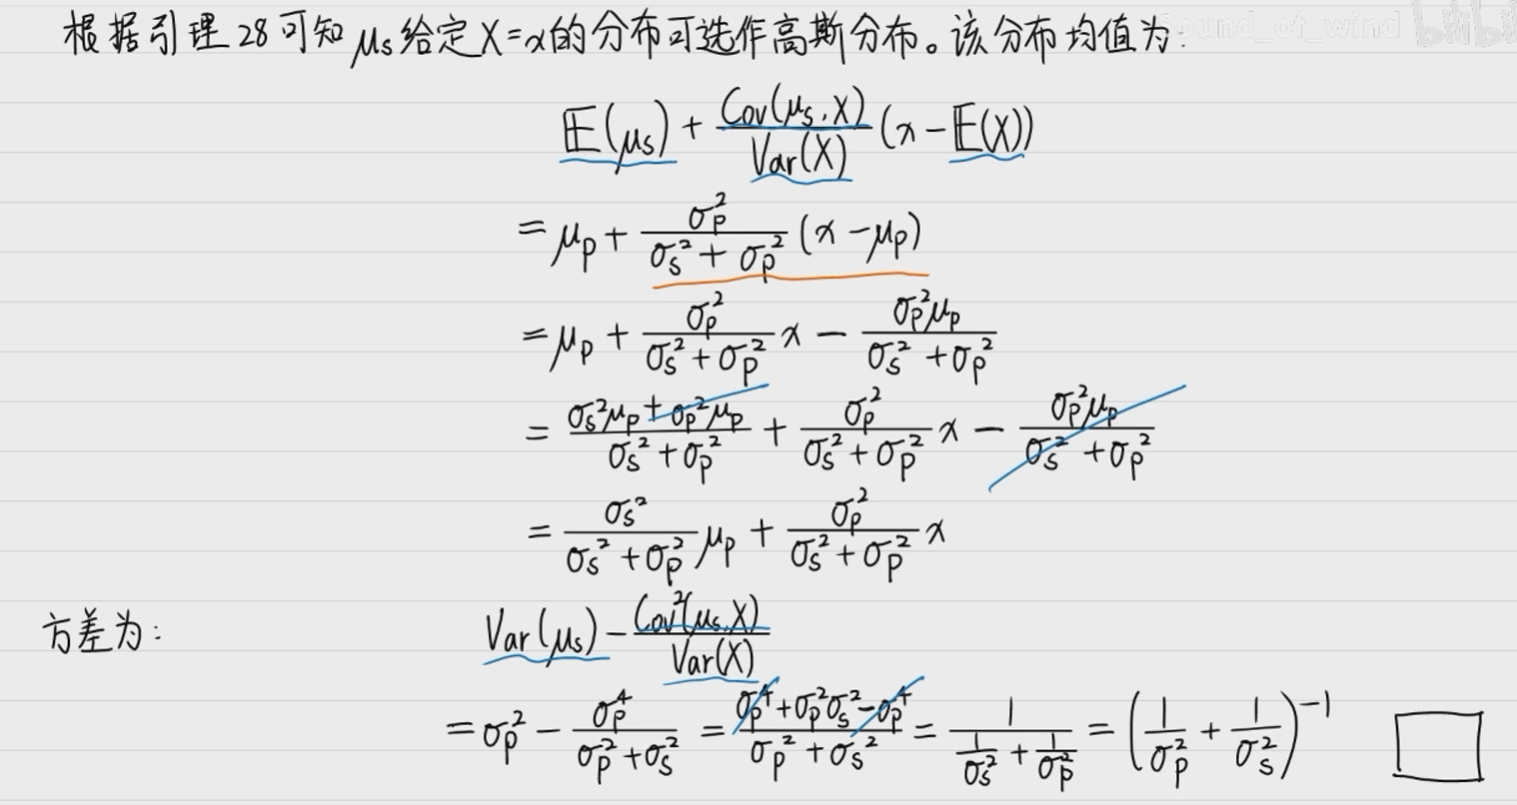 根据引理28可知 μₛ给定X=x的分布可选作高斯分布。该分布均值为:
Sound_of_wind bilibili
𝔼(μₛ) + Cov(μₛ,X)/Var(X) (x − 𝔼(X))
= μₚ + σₚ²/(σₛ² + σₚ²) (x − μₚ)
= μₚ + σₚ²/(σₛ² + σₚ²) x − σₚ²μₚ/(σₛ² + σₚ²)
= (σₛ²μₚ + σₚ²μₚ)/(σₛ² + σₚ²) + σₚ²/(σₛ² + σₚ²) x − σₚ²μₚ/(σₛ² + σₚ²)
= σₛ²/(σₛ² + σₚ²) μₚ + σₚ²/(σₛ² + σₚ²) x
方差为: Var(μₛ) − Cov²(μₛ,X)/Var(X)
= σₚ² − σₚ⁴/(σₚ² + σₛ²) = (σₚ⁴ + σₚ²σₛ² − σₚ⁴)/(σₚ² + σₛ²) = 1/(1/σₛ² + 1/σₚ²) = (1/σₚ² + 1/σₛ²)⁻¹ □